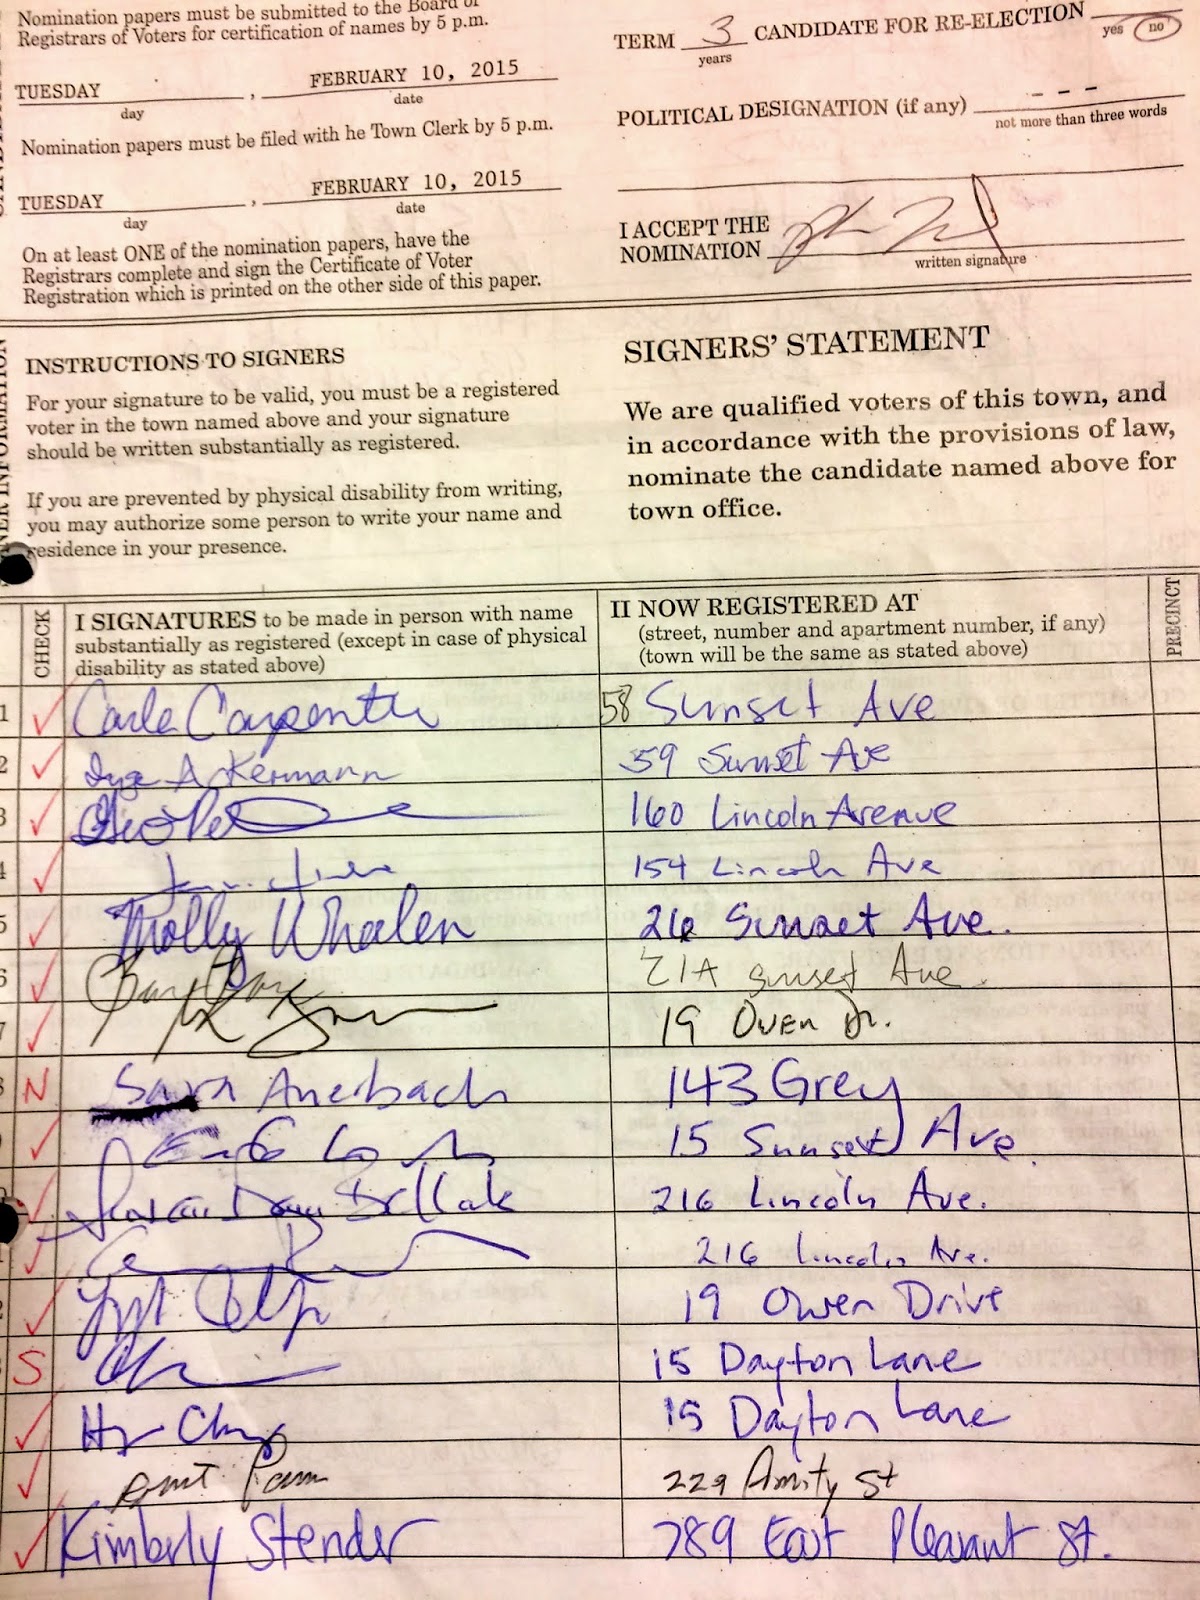 Nomination papers must be submitted to the Board of
Registrars of Voters for certification of names by 5 p.m.
TUESDAY , FEBRUARY 10, 2015
day date
Nomination papers must be filed with he Town Clerk by 5 p.m.
TUESDAY , FEBRUARY 10, 2015
day date
On at least ONE of the nomination papers, have the
Registrars complete and sign the Certificate of Voter
Registration which is printed on the other side of this paper.
TERM 3 CANDIDATE FOR RE-ELECTION
years yes no
POLITICAL DESIGNATION (if any) - - -
not more than three words
I ACCEPT THE
NOMINATION
written signature
INSTRUCTIONS TO SIGNERS
For your signature to be valid, you must be a registered
voter in the town named above and your signature
should be written substantially as registered.
If you are prevented by physical disability from writing,
you may authorize some person to write your name and
residence in your presence.
SIGNERS' STATEMENT
We are qualified voters of this town, and
in accordance with the provisions of law,
nominate the candidate named above for
town office.
CHECK
I SIGNATURES to be made in person with name
substantially as registered (except in case of physical
disability as stated above)
II NOW REGISTERED AT
(street, number and apartment number, if any)
(town will be the same as stated above)
PRECINCT
1 ✓ Carle Carpenter 58 Sunset Ave
2 ✓ Ackermann 59 Sunset Ave
3 ✓ 160 Lincoln Avenue
4 ✓ 154 Lincoln Ave
5 ✓ Molly Whalen 26 Sunset Ave.
6 ✓ 21A Sunset Ave.
7 ✓ 19 Owen Dr.
8 N Sara Auerbach 143 Grey
✓ 15 Sunset Ave.
✓ 216 Lincoln Ave.
✓ 216 Lincoln Ave.
2 ✓ 19 Owen Drive
3 S 15 Dayton Lane
✓ 15 Dayton Lane
✓ 229 Amity St
✓ Kimberly Stender 789 East Pleasant St.